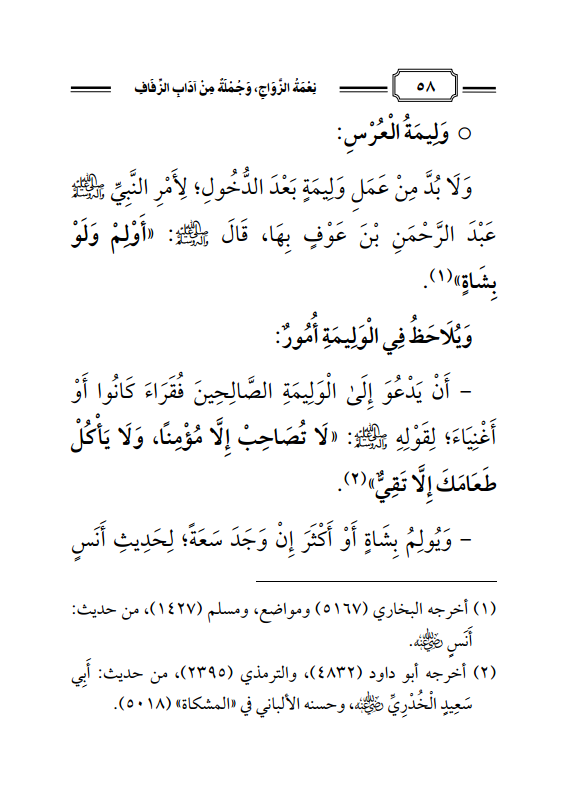 ٥٨
نِعْمَةُ الزَّوَاجِ، وَجُمْلَةٌ مِنْ آدَابِ الزِّفَافِ
○ وَلِيمَةُ الْعُرْسِ:
وَلَا بُدَّ مِنْ عَمَلِ وَلِيمَةٍ بَعْدَ الدُّخُولِ؛ لِأَمْرِ النَّبِيِّ ﷺ
عَبْدَ الرَّحْمَنِ بْنَ عَوْفٍ بِهَا، قَالَ ﷺ: «أَوْلِمْ وَلَوْ
بِشَاةٍ»(١).
وَيُلَاحَظُ فِي الْوَلِيمَةِ أُمُورٌ:
- أَنْ يَدْعُوَ إِلَىٰ الْوَلِيمَةِ الصَّالِحِينَ فُقَرَاءَ كَانُوا أَوْ
أَغْنِيَاءَ؛ لِقَوْلِهِ ﷺ: «لَا تُصَاحِبْ إِلَّا مُؤْمِنًا، وَلَا يَأْكُلْ
طَعَامَكَ إِلَّا تَقِيٌّ»(٢).
- وَيُولِمُ بِشَاةٍ أَوْ أَكْثَرَ إِنْ وَجَدَ سَعَةً؛ لِحَدِيثِ أَنَسٍ
(١) أخرجه البخاري (٥١٦٧) ومواضع، ومسلم (١٤٢٧)، من حديث:
أَنَسٍ رضي الله عنه.
(٢) أخرجه أبو داود (٤٨٣٢)، والترمذي (٢٣٩٥)، من حديث: أَبِي
سَعِيدٍ الْخُدْرِيِّ رضي الله عنه، وحسنه الألباني في «المشكاة» (٥٠١٨).